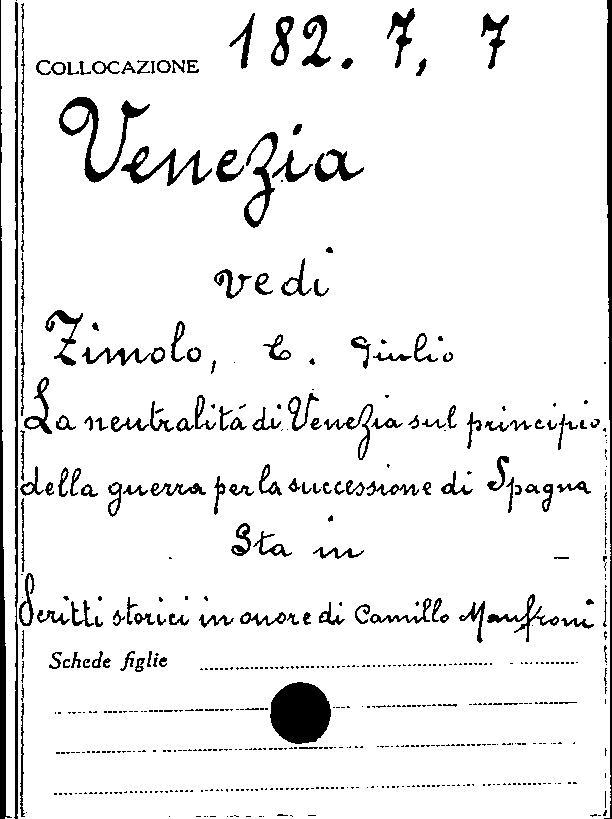 COLLOCAZIONE 182. 7, 7
Venezia
vedi
Zimolo, C. Giulio
La neutralitá di Venezia sul principio
della guerra per la successione di Spagna
Sta in
Scritti storici in onore di Camillo Manfroni
Schede figlie